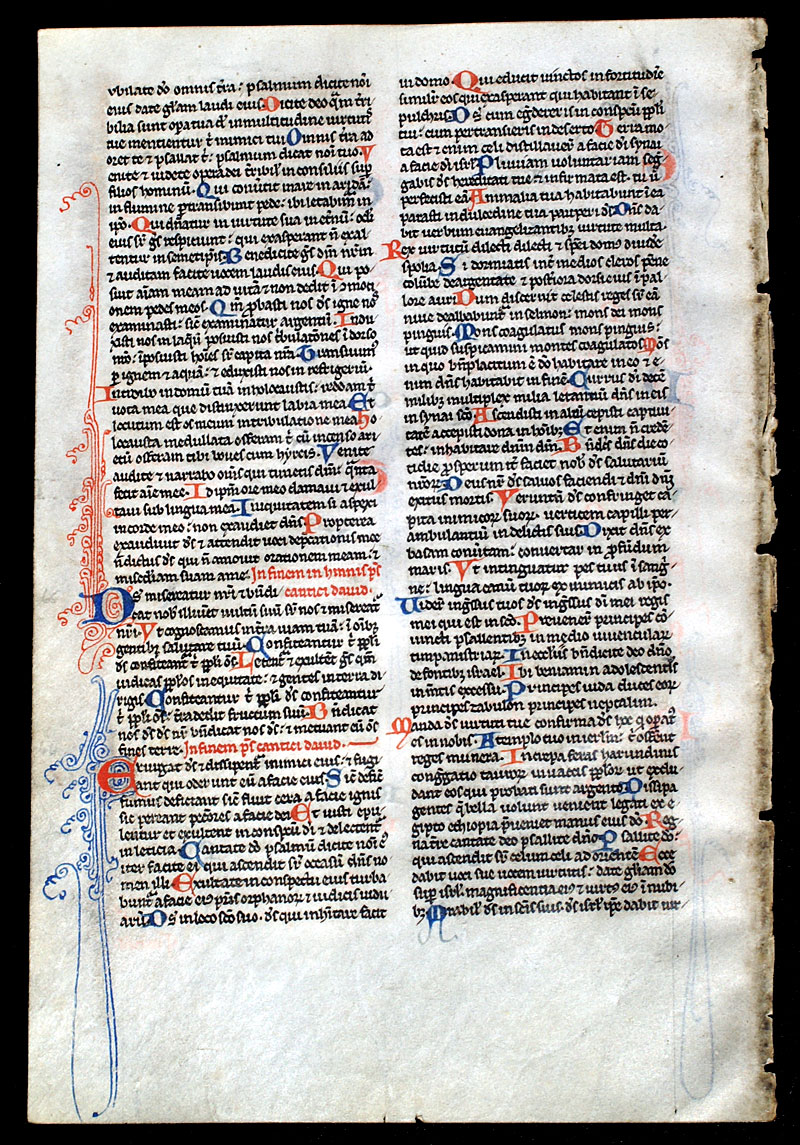 vbilate dō omnis tr̄a : psalmum dicite nōi
eius date gl̄am laudi eius. Dicite deo q̄m tr̄i
bilia sunt opera tua dn̄e in multitudine uirtut̄
tue mentientur t̄ inimici tui Omnis tr̄a ad
oret te ⁊ psallat t̄ : psalmum dicat nōi tuo. V
enite ⁊ uidete opera dei t̄ribil̄ in consiliis sup̄
filios hominū. Qui conūtit mare in aridā :
in flumine p̄transibunt pede : ibi letabim̄ in
ip̄o. Qui dn̄atur in uirtute sua in et̄nū : oc̄li
eius sr̄ ḡs respiciunt : qui exasperant n̄ exal
tentur in semetip̄is Benedicite ḡs dm̄ nr̄m
⁊ auditam facite uocem laudis eius. Qui po
suit aīam meam ad uitā ⁊ non dedit ī ɔmoti
onem pedes meos. Qm̄ probasti nos ds̄ igne nos
examinasti : sic̄ examinatur argentū. Indu
xisti nos in laqū posuisti nos t̄bulatōnes ī dorso
nr̄o : īposuisti hoīes sr̄ capita nr̄a Transiuim̄
p̄ ignem ⁊ aquā : ⁊ eduxisti nos in refrigeriū.
Introibo in domū tuā in holocaustis : reddam t̄
uota mea que distinxerunt labia mea Et
locutum est os meum in tribulatione mea ho
locausta medullata offeram t̄ cū incenso ari
etū offeram tibi boues cum hyrcis. Venite
audite ⁊ narrabo om̄s qui timetis dm̄ : q̄nta
fecit aīe mee. Ad ip̄m ore meo clamaui ⁊ exul
taui sub lingua mea Iniquitatem si aspexi
in corde meo : non exaudiet dn̄s Propterea
exaudiuit ds̄ ⁊ attendit uoci dep̄cationis mee
B̄ndictus ds̄ qui n̄ amouit orationem meam ⁊
misc̄diam suam a me. In finem in himnis ps̄
Ds̄ misereatur nr̄i ⁊ b̄ndi cantici dauid.
cat nob̄ illuīet uultū suū sr̄ nos ⁊ misereat̄
nr̄i. Vt cognoscamus in tr̄a uiam tuā : ī oīb;
gentib; salutare tuū. Confiteantur t̄ pp̄li
ds̄ confiteant̄ t̄ pp̄li om̄s. Letent̄ ⁊ exultēt ḡs qm̄
iudicas pp̄los in equitate : ⁊ gentes in terra di
rigis Confiteantur t̄ pp̄li ds̄ confiteantur
t̄ pp̄li om̄s : tr̄a dedit fructum suū. B̄ndicat
nos ds̄ ds̄ nr̄ b̄ndicat nos ds̄ : ⁊ metuant eū om̄s
fines terre. In finem ps̄ cantici dauid.
Exurgat ds̄ ⁊ dissipent̄ inimici eius : ⁊ fugi
ant qui oderunt eū a facie eius. Sic̄ deficit
fumus deficiant sic̄ fluit cera a facie ignis
sic pereant pecc̄ores a facie dei Et iusti epu
lentur et exultent in conspectu di ⁊ delectent̄
in leticia. Cantate dō psalmū dicite noīi eī
iter facite ei qui ascendit sr̄ occasū dn̄s no
men illi Exultate in conspectu eius turba
bunt̄ a facie eiꝰ pr̄is orphanorꝝ ⁊ iudicis uidu
arū. Ds̄ in loco sc̄o suo. ds̄ qui inh̄itare facit
in domo. Qui educit uinctos in fortitudīe
simil̄r eos qui exasperant qui habitant ī se
pulchris Ds̄ cum eḡdereris in conspectu pp̄li
tui : cum pertransieris in deserto Terra mo
ta est ⁊ enim celi distillauer̄ a facie di synai
a facie di isrl̄. Pluuiam uoluntariam seg̃
gabis ds̄ hereditati tue ⁊ infirmata est. tu ū
perfecisti eā Animalia tua habitabunt ī ea
parasti in dulcedine tua pauperi ds̄ Dn̄s da
bit uerbum euangelizantib; uirtute multa.
Rex uirtutū dilecti dilecti ⁊ sp̄ei dom̄ diuide
spolia. Si dormiatis int̄ medios cleros penne
colūbe deargentate ⁊ post̄iora dorsi eiꝰ ī pal
lore auri Dum discernit celestis reges sr̄ eā
niue dealbabunt̄ in selmon : mons dei mons
pinguis. Mons coagulatus mons pinguis :
ut quid suspicamini montes coagulatos Mōs
in quo bn̄placitum ē dō habitare in eo ⁊ e
nim dn̄s habitabit in finē. Currus di decē
milib; multiplex milia letantiū dn̄s in eis
in synai sc̄o Ascendisti in altū cepisti captiui
tatē accepisti dona in hoīb; Et enim n̄ credē
tes : inhabitare dn̄m dm̄. B̄ndc̄s dn̄s die co
tidie prosperum it̄ faciet nob̄ ds̄ salutariū
nr̄orꝝ. Deus nr̄ ds̄ saluos faciendi ⁊ dn̄i dn̄i
exitus mortis Veruntn̄ ds̄ confringet ca
pita inimicorꝝ suorꝝ. uerticem capilli per
ambulantiū in delictis suis Dixit dn̄s ex
basam conūtam : conuertar in profūdum
maris. Vt intinguatur pes tuus ī sang̃i
ne : lingua canū tuorꝝ ex inimicis ab ip̄o.
Uider̄ ingressus tuos ds̄ ingressus di mei regis
mei qui est in sc̄o. Preuener̄ principes cō
iuncti psallentib; in medio iuuencular̄
timpanistriar̄. In ecclesiis b̄ndicite deo dn̄o
de fontibꝰ israel. Ibi beniamin adolescentulꝰ
in m̄tis excessu. Principes iuda duces eorꝝ
principes zabulon principes neptalim.
Manda ds̄ uirtuti tue confirma ds̄ hoc q̄ opatꝰ
es in nobis. A templo tuo in ierl̄m : t̄ offerēt
reges munera. Increpa feras harundinis
cong̃gatio taurorꝝ in uaccis pp̄lor̄ ut exclu
dant eos qui probati sunt argento Dissipa
gentes q̄ bella uolunt uenient legati ex e
gipto ethiopia p̄ueniet manus eius dō Reg
na tr̄e cantate deo psallite dn̄o. Psallite dō :
qui ascendit sr̄ celum celi ad orientē Ecce
dabit uoci sue uocem uirtutis : date gl̄iam dō
sup̄ isrl̄. magnificentia eiꝰ ⁊ uirtꝰ eiꝰ ī nubi
b; Mirabil̄ ds̄ in sc̄is suis. ds̄ isrl̄ ip̄e dabit uir